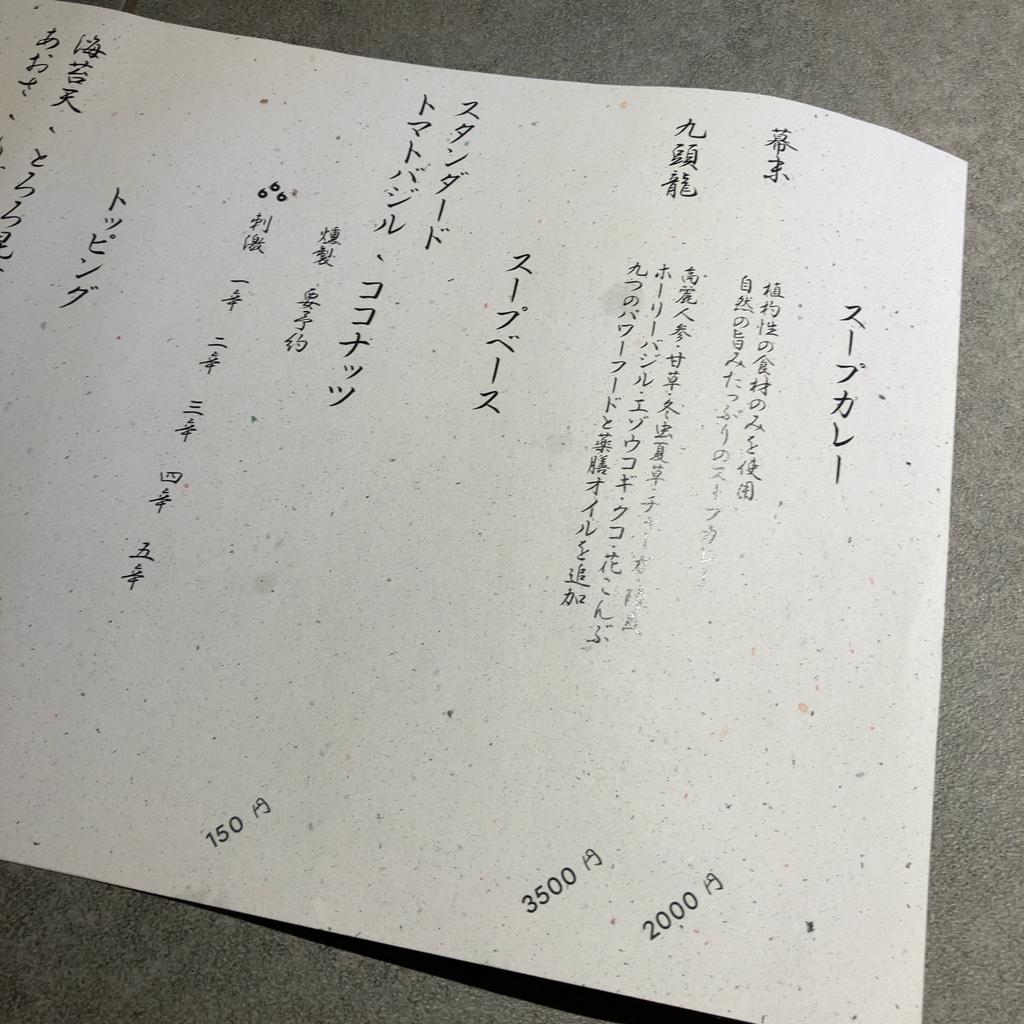 スープカレー
幕末
植物性の食材のみを使用
自然の旨みたっぷりのスープカレー
2000円
九頭龍
高麗人参・甘草・冬虫夏草・
ホーリーバジル・エゾウコギ・クコ・花こんぶ
九つのパワーフードと薬膳オイルを追加
3500円
スープベース
スタンダード
トマトバジル、ココナッツ
150円
燻製 要予約
刺激 一辛 二辛 三辛 四辛 五辛
トッピング
海苔天、とろろ昆
あおさ、